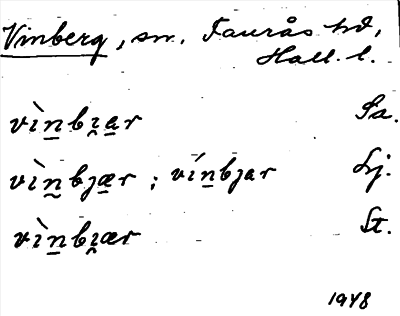 Vinberg, sn. Faurås hd,
Hall. l.
vìn̲bi̯a̲r Sa.
vìn̲bjæ̲r ; vín̲bjar Lj.
vìn̲bi̯ær St.
1948